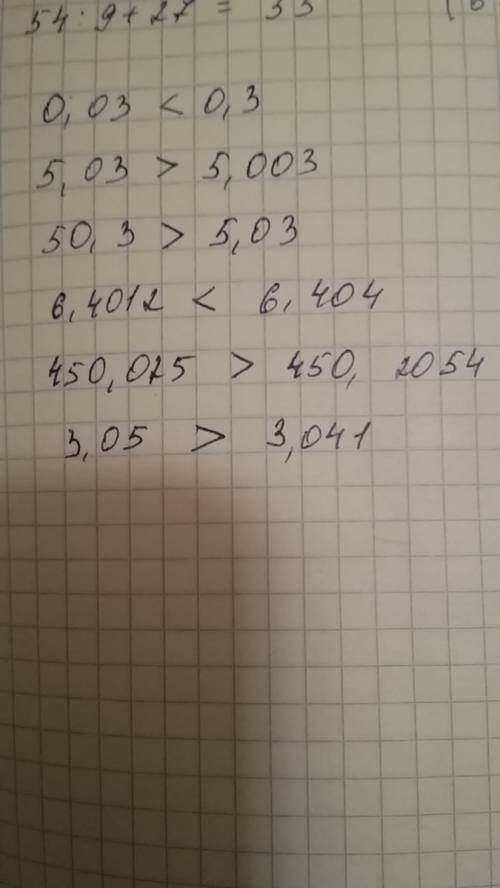 54 : 9 + 27 = 33
0,03 < 0,3
5,03 > 5,003
50,3 > 5,03
6,4012 < 6,404
450,025 > 450, 2054
3,05 > 3,041